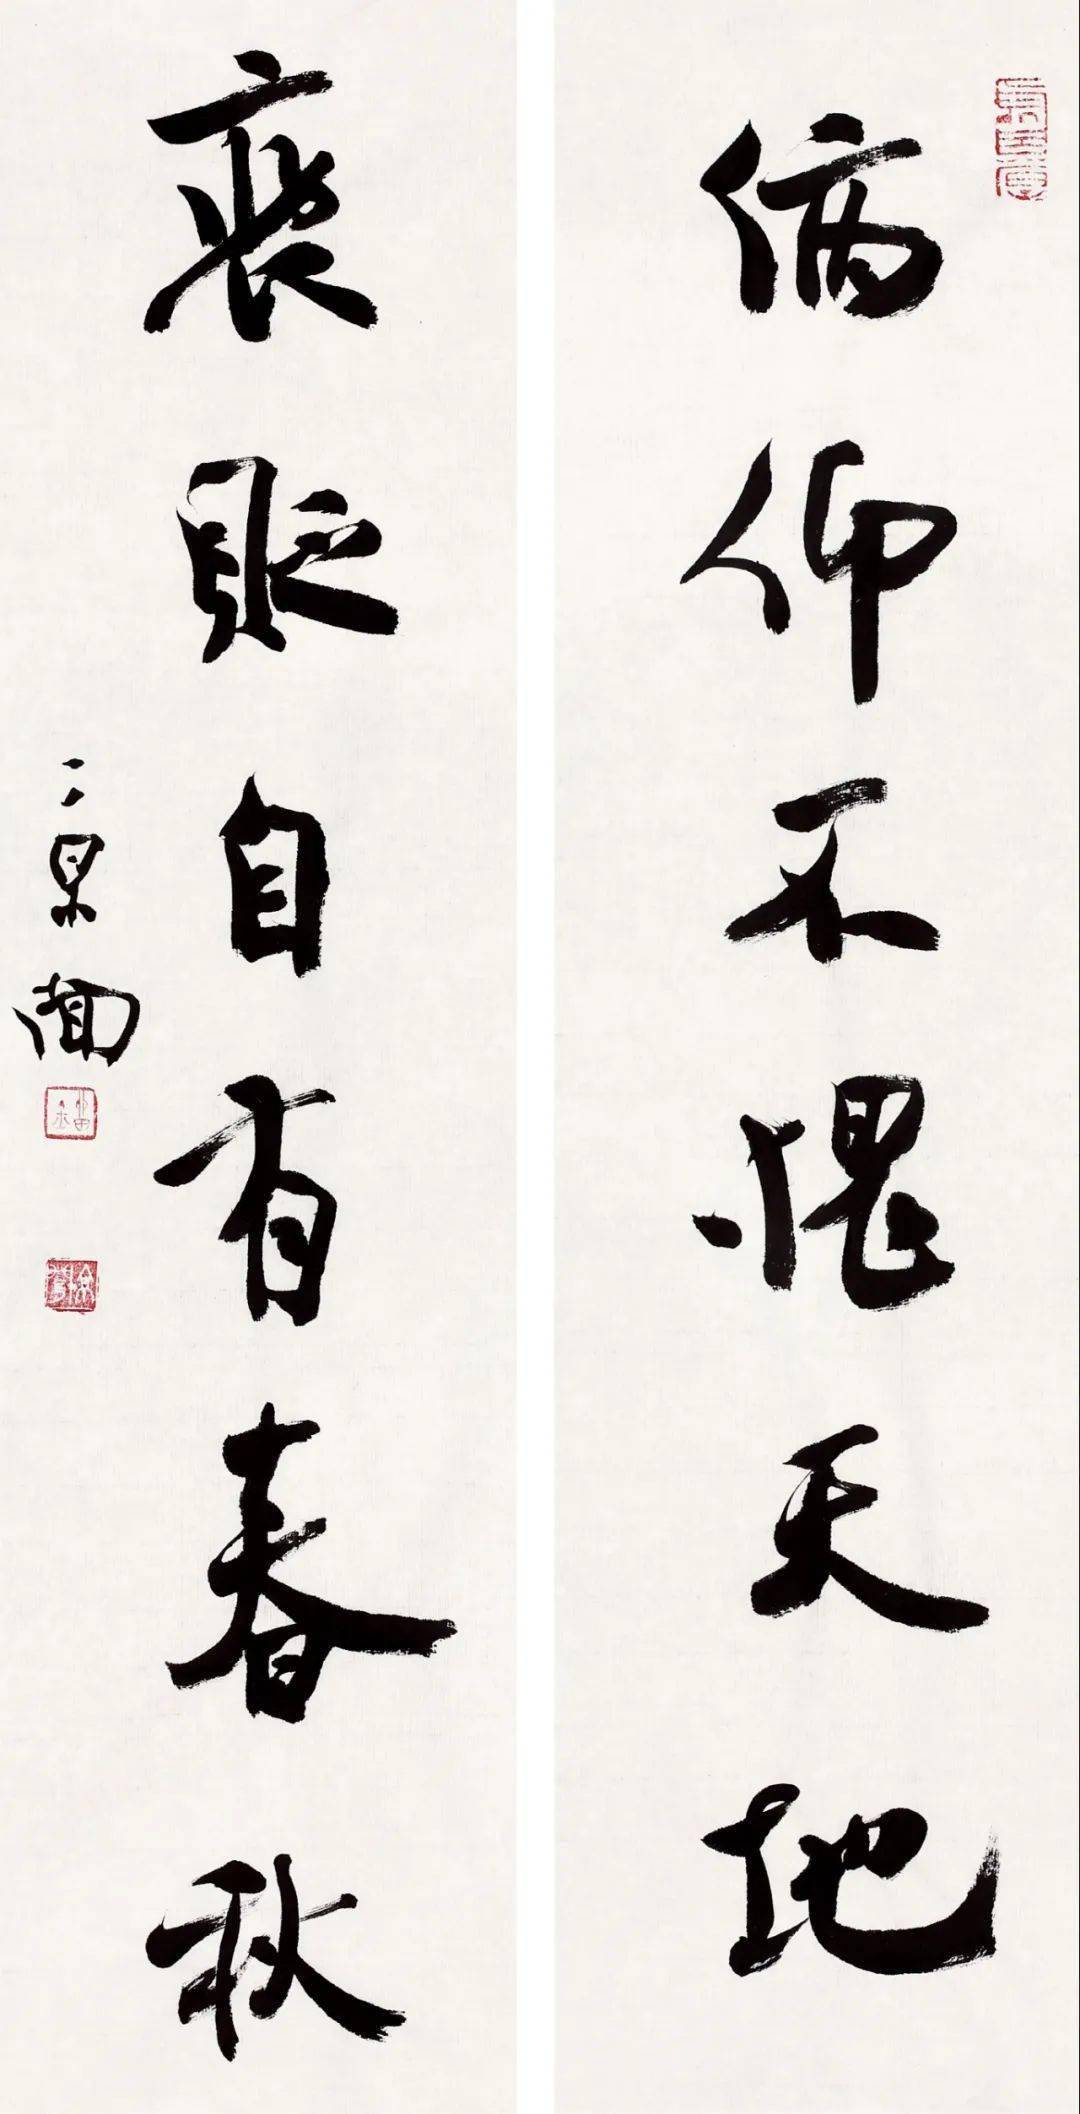 俯仰不愧天地
褒贬自有春秋